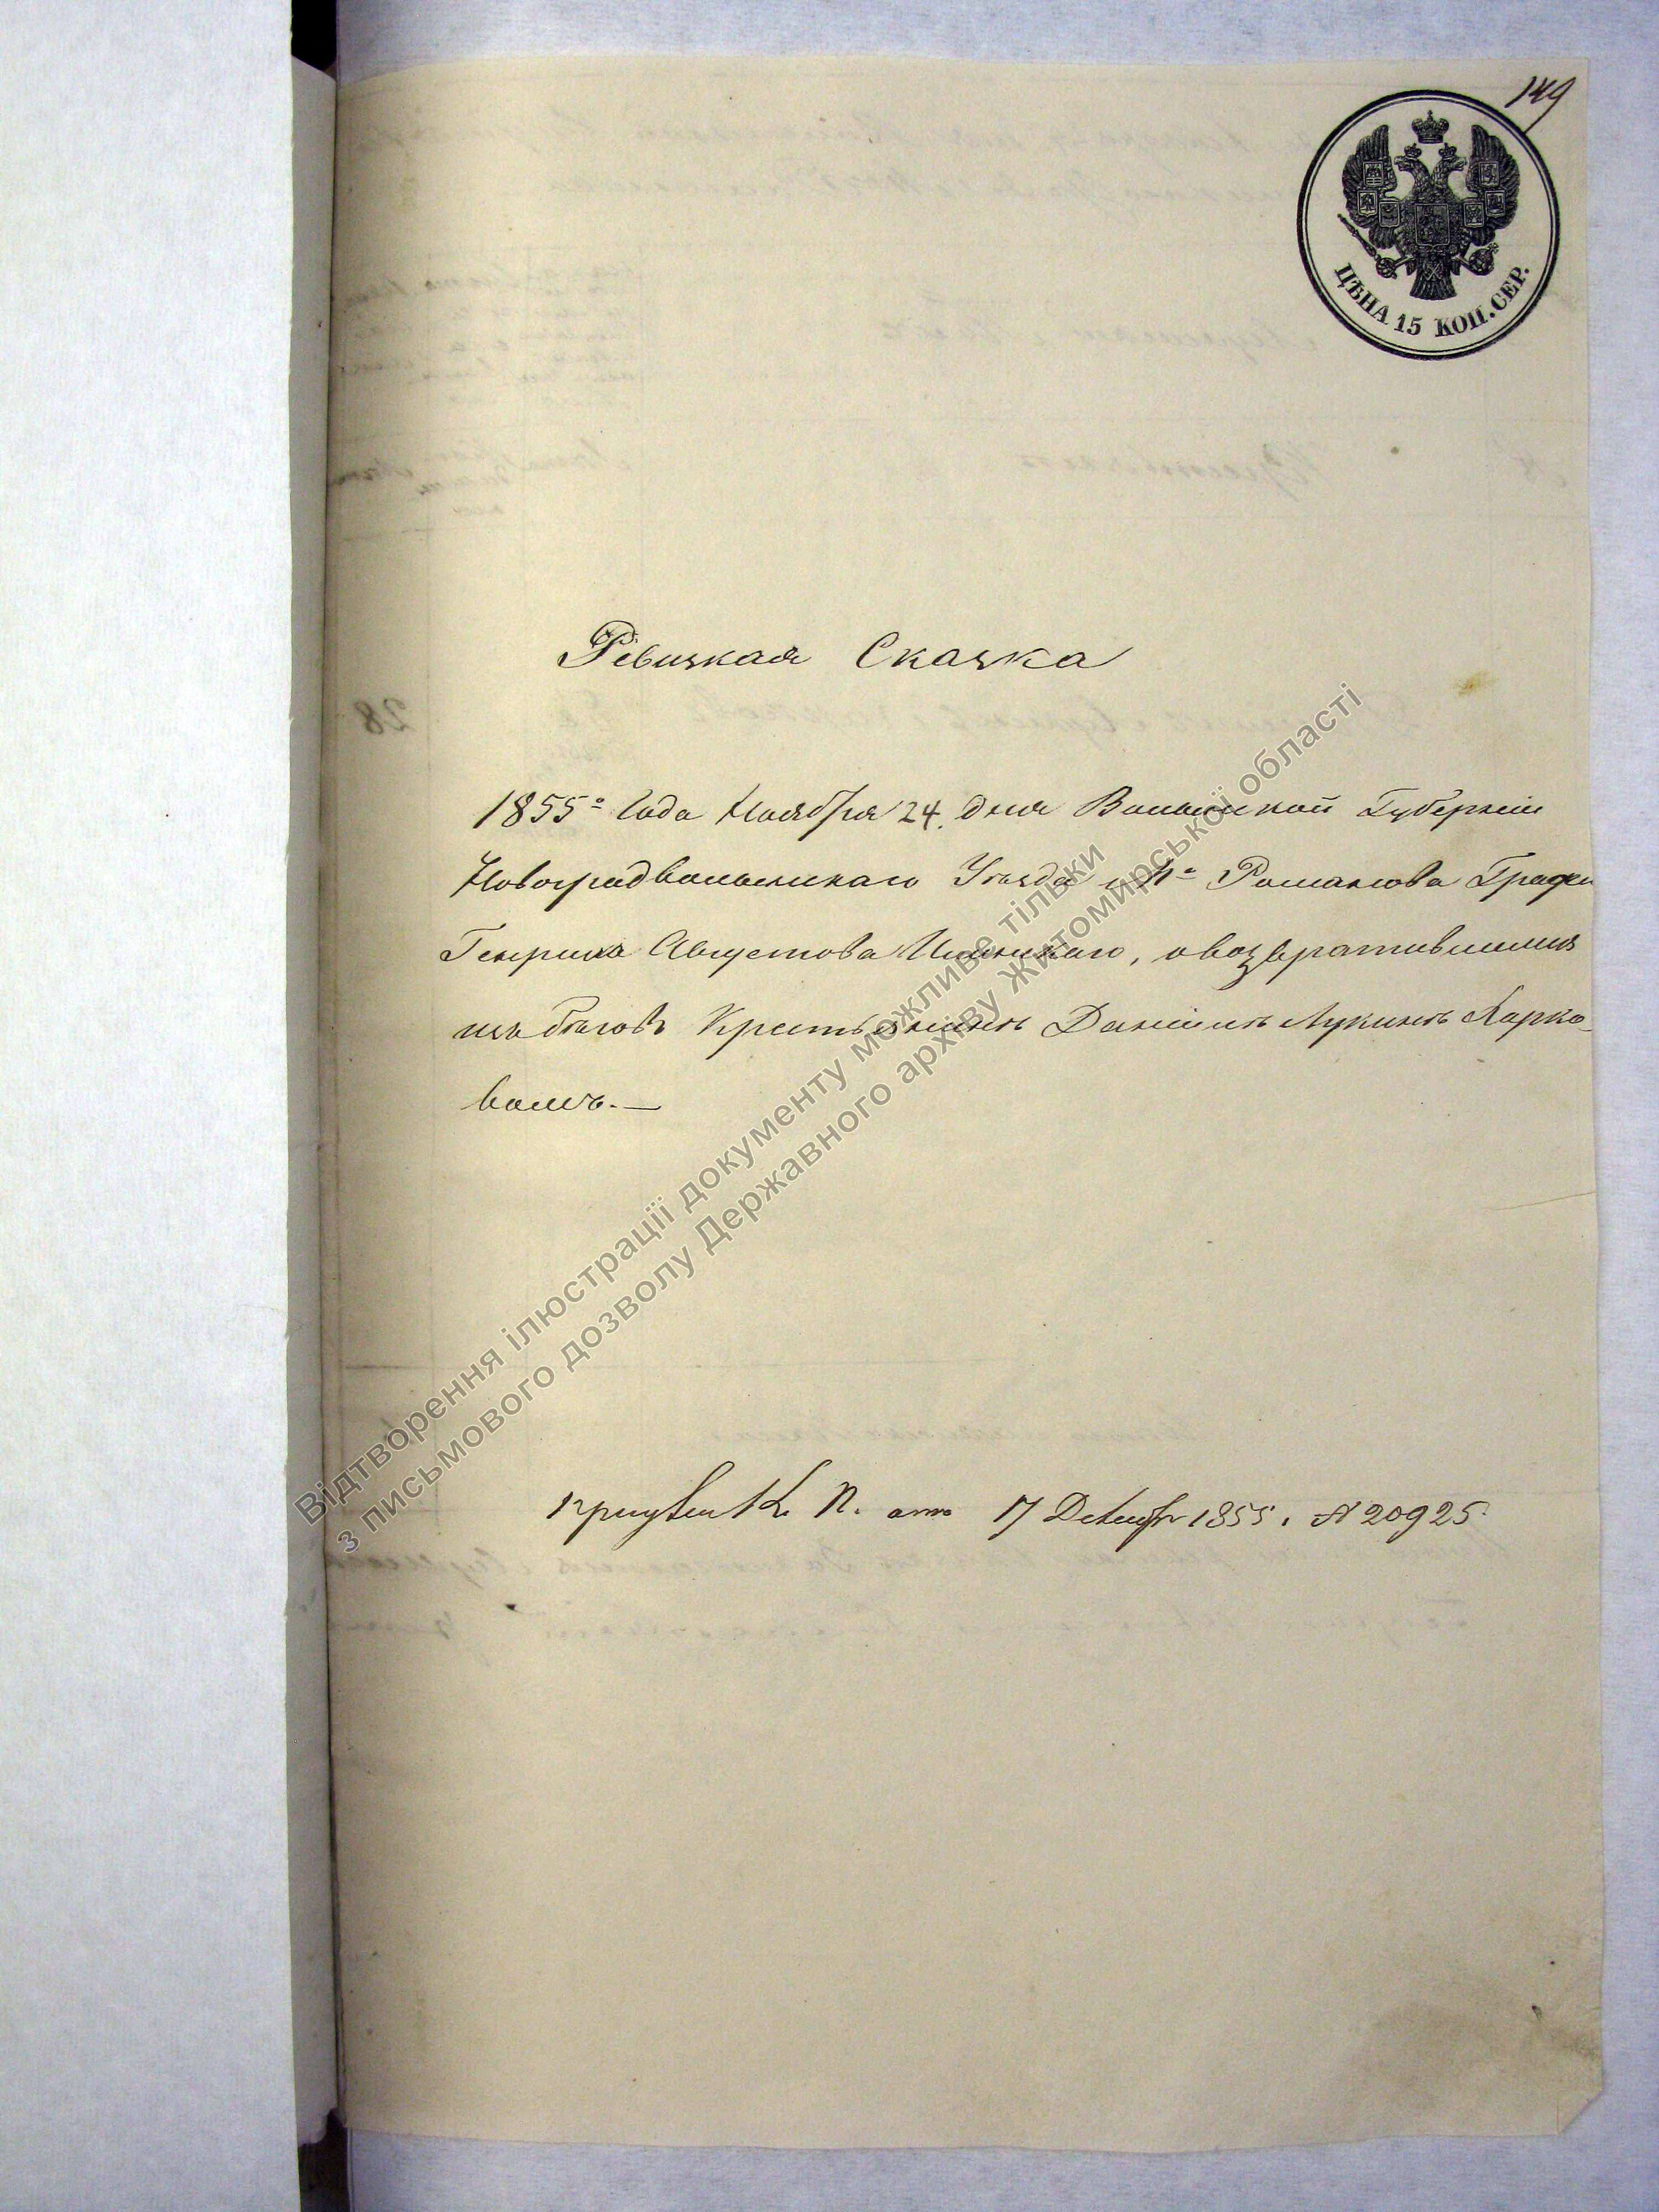 149
ЦѢНА 15 КОП. СЕР.
Ревизкая Сказка
1855го Года Ноября 24. дня Волынской Губерніи
Новоградволынскаго Уѣзда м-ка Романова Графа
Генриха Августова Илинскаго, о возвратившимся
изъ бѣговъ Крестьянинѣ Даніилѣ Лукинѣ Харко-
вомъ.—
При указѣ К. П. отъ 17 Декабря 1855 г. № 20925.
Відтворення ілюстрації документу можливе тільки
з письмового дозволу Державного архіву Житомирської області